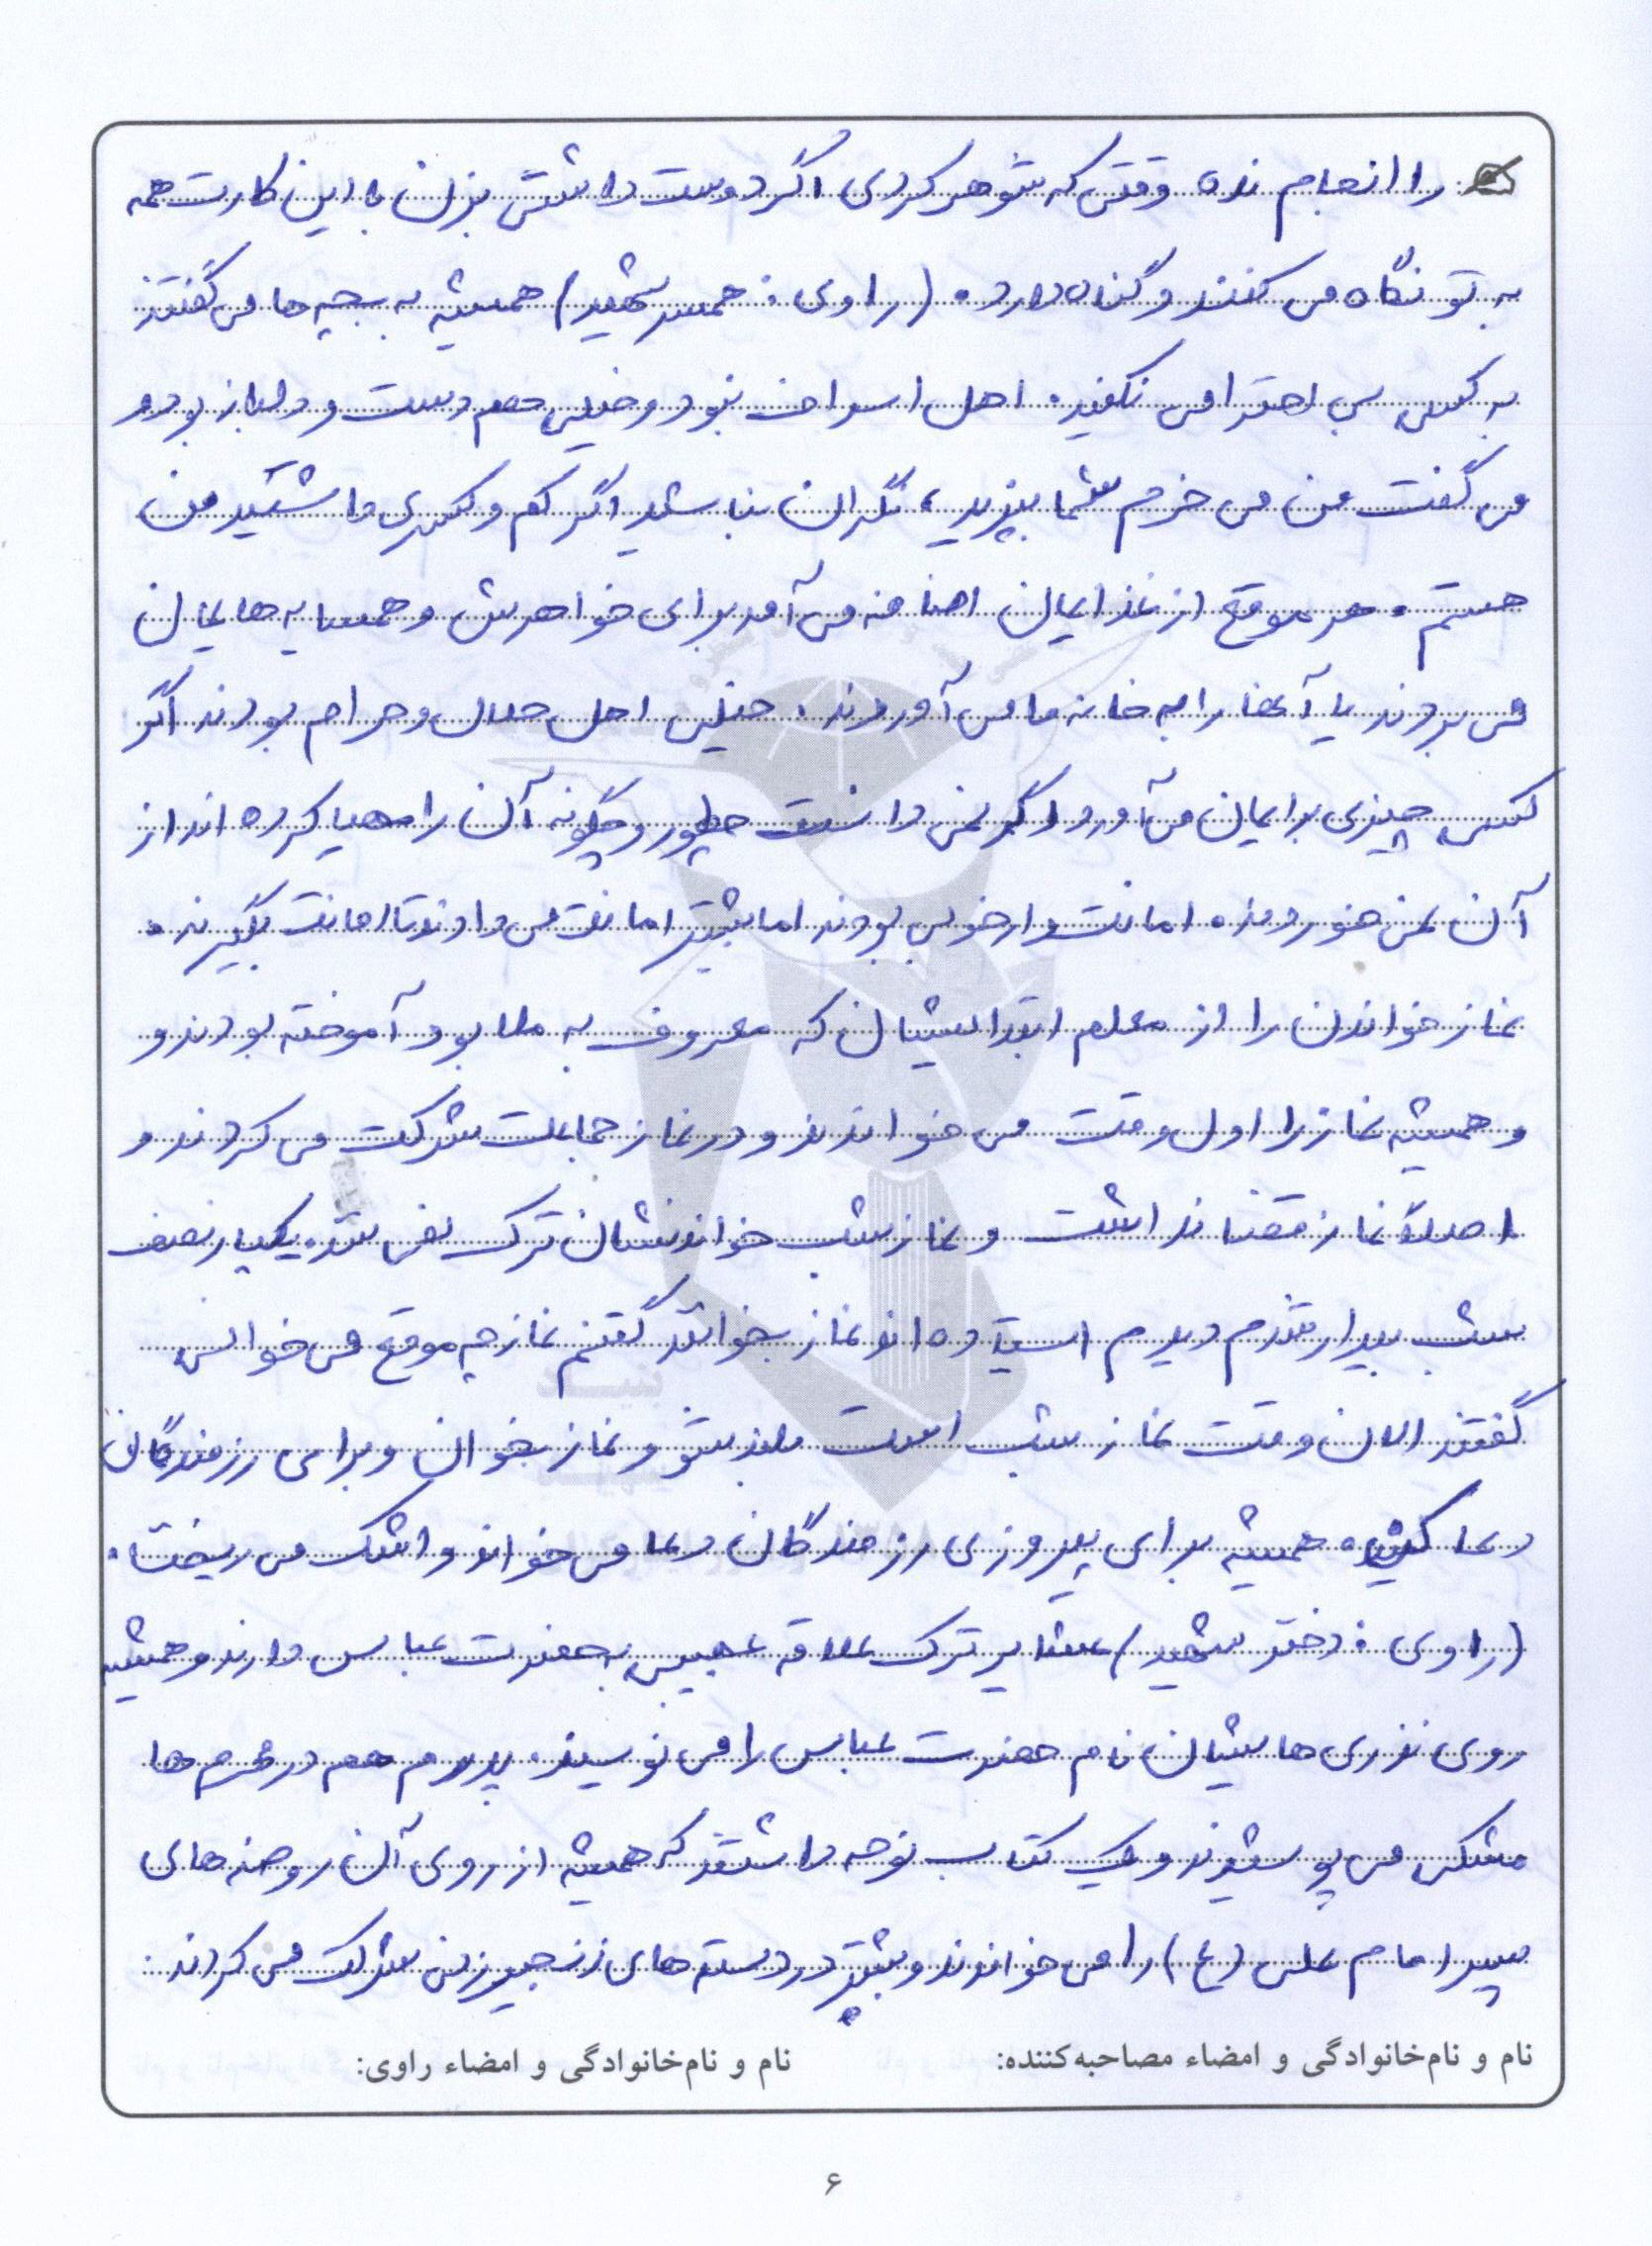 را انجام نده وقتی که شوهر کردی اگر دوست داشتی بزن با این کارت همه
به تو نگاه می کنند و گناه دارد. (راوی: همسر شهید) همیشه به بچه ها می گفتند
به کسی بی احترامی نکنید. اهل اسراف نبود و خیلی دست و دلباز بود و
می گفت من می خرم شما بپزید، نگران نباشید اگر کم و کسری داشتید من
هستم. هر موقع از غذایمان اضافه می آمد برای خواهرش و همسایه هایمان
می بردند یا آنها را به خانه ما می آوردند. خیلی اهل حلال و حرام بودند اگر
کسی چیزی برایمان می آورد و اگر نمی دانست چطور و چگونه آن را مهیا کرده اند از
آن نمی خوردند. امانت دار خوبی بودند اما بیشتر امانت می دادند تا امانت بگیرند.
نماز خواندن را از معلم ابتدائیشان که معروف به ملا بود آموخته بودند و
و همیشه نماز را اول وقت می خواندند و در نماز جماعت شرکت می کردند و
اصلاً نماز قضا نداشت و نماز شب خواندنشان ترک نمی شد. یکبار نصف
شب بیدار شدم دیدم ایستاده اند نماز بخوانند گفتم نماز چه موقع می خوانی
گفتند الان وقت نماز شب است بلند شو و نماز بخوان و برای رزمندگان
دعا کنید. همیشه برای پیروزی رزمندگان دعا می خواند و اشک می ریخت.
(راوی: دختر شهید) عشایر ترک علاقه عجیبی به حضرت عباس دارند و همیشه
روی نذری هایشان نام حضرت عباس را می نویسند. پدرم هم در محرم ها
مشکی می پوشیدند و یک کتاب نوحه داشتند که همیشه از روی آن روضه های
پسر امام علی (ع) را می خواندند و بیشتر در دسته های زنجیرزنی شرکت می کردند.
نام و نام‌خانوادگی و امضاء مصاحبه‌کننده: نام و نام‌خانوادگی و امضاء راوی:
۶